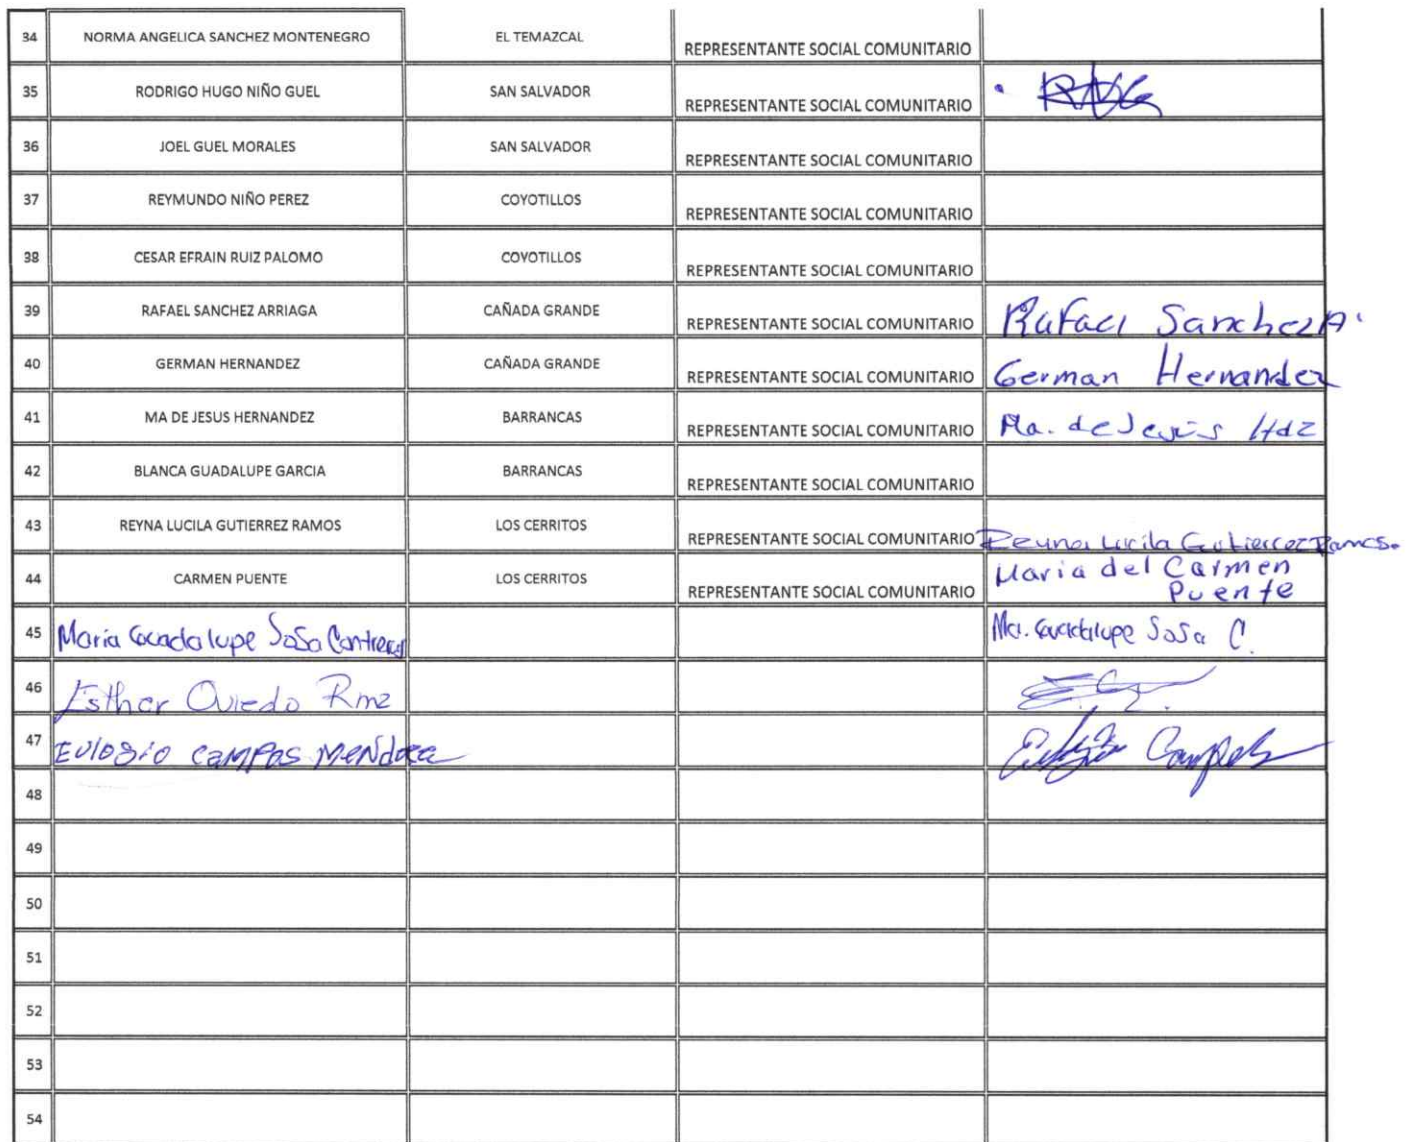 34 NORMA ANGELICA SANCHEZ MONTENEGRO EL TEMAZCAL REPRESENTANTE SOCIAL COMUNITARIO
35 RODRIGO HUGO NIÑO GUEL SAN SALVADOR REPRESENTANTE SOCIAL COMUNITARIO
36 JOEL GUEL MORALES SAN SALVADOR REPRESENTANTE SOCIAL COMUNITARIO
37 REYMUNDO NIÑO PEREZ COYOTILLOS REPRESENTANTE SOCIAL COMUNITARIO
38 CESAR EFRAIN RUIZ PALOMO COYOTILLOS REPRESENTANTE SOCIAL COMUNITARIO
39 RAFAEL SANCHEZ ARRIAGA CAÑADA GRANDE REPRESENTANTE SOCIAL COMUNITARIO Rafael Sanchez A.
40 GERMAN HERNANDEZ CAÑADA GRANDE REPRESENTANTE SOCIAL COMUNITARIO German Hernandez
41 MA DE JESUS HERNANDEZ BARRANCAS REPRESENTANTE SOCIAL COMUNITARIO Ma. de Jesús Hdz
42 BLANCA GUADALUPE GARCIA BARRANCAS REPRESENTANTE SOCIAL COMUNITARIO
43 REYNA LUCILA GUTIERREZ RAMOS LOS CERRITOS REPRESENTANTE SOCIAL COMUNITARIO Reyna Lucila Gutierrez Ramos.
44 CARMEN PUENTE LOS CERRITOS REPRESENTANTE SOCIAL COMUNITARIO Maria del Carmen
Puente
45 Maria Guadalupe Sosa Contreras Ma. Guadalupe Sosa C.
46 Esther Oviedo Rmz
47 EULOGIO CAMPOS MENDOZA Eulogio Campos
48
49
50
51
52
53
54